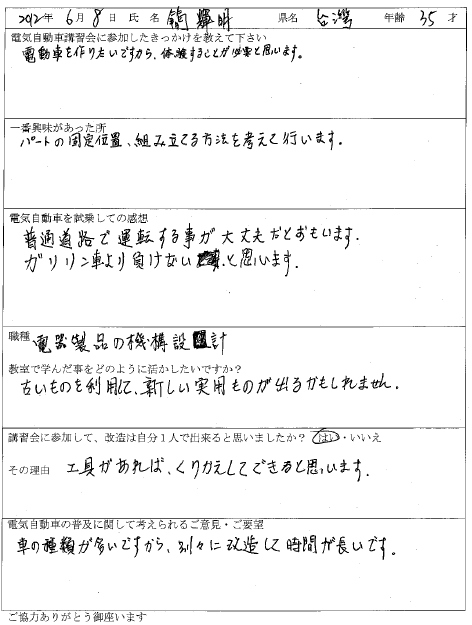 2012年 6月 8日 氏名 輝明 県名 台湾 年齢 35 才
電気自動車講習会に参加したきっかけを教えて下さい
電動車を作りたいですから、体験することが必要と思います。
一番興味があった所
パートの固定位置、組み立てる方法を考えて行います。
電気自動車を試乗しての感想
普通道路で運転する事が大丈夫だとおもいます。
ガソリン車より負けないと思います。
職種 電器製品の機構設計
教室で学んだ事をどのように活かしたいですか?
古いものを利用して、新しい実用ものが出るかもしれません。
講習会に参加して、改造は自分1人で出来ると思いましたか? はい・いいえ
その理由 工具があれば、くりかえしてできると思います。
電気自動車の普及に関して考えられるご意見・ご要望
車の種類が多いですから、別々に改造して時間が長いです。
ご協力ありがとう御座います